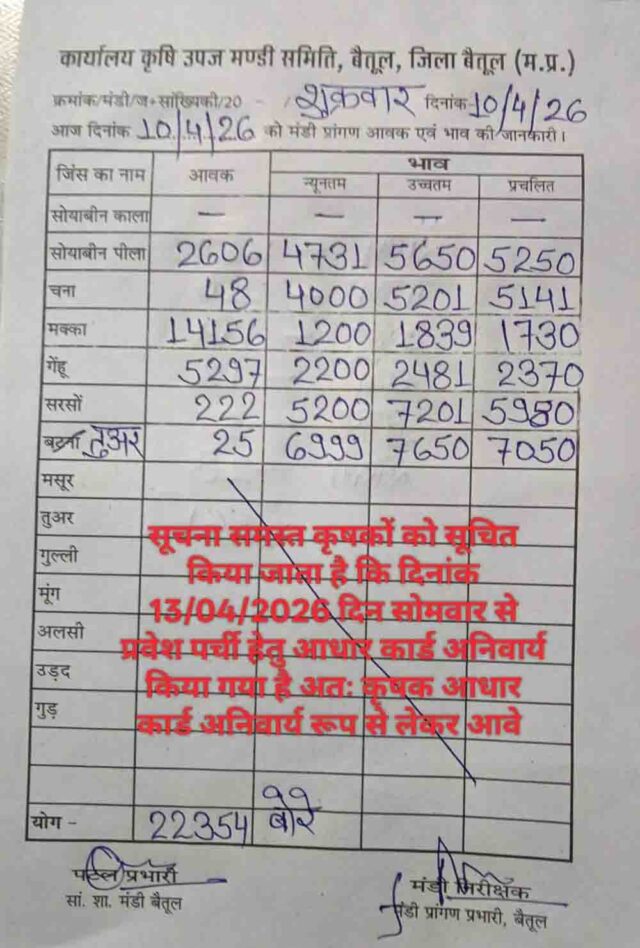 कार्यालय कृषि उपज मण्डी समिति, बैतूल, जिला बैतूल (म.प्र.)
क्रमांक/मंडी/ज+सांख्यिकी/20 - / शुक्रवार दिनांक 10/4/26
आज दिनांक 10/4/26 को मंडी प्रांगण आवक एवं भाव की जानकारी।
जिंस का नाम आवक भाव
न्यूनतम उच्चतम प्रचलित
सोयाबीन काला — — — —
सोयाबीन पीला 2606 4731 5650 5250
चना 48 4000 5201 5141
मक्का 14156 1200 1839 1730
गेंहू 5297 2200 2481 2370
सरसों 222 5200 7201 5980
बटना तुअर 25 6999 7650 7050
मसूर
तुअर
गुल्ली
मूंग
अलसी
उड़द
गुड़
सूचना समस्त कृषकों को सूचित
किया जाता है कि दिनांक
13/04/2026 दिन सोमवार से
प्रवेश पर्ची हेतु आधार कार्ड अनिवार्य
किया गया है अतः कृषक आधार
कार्ड अनिवार्य रूप से लेकर आवे
योग - 22354 बोरे
प्रभारी
सां. शा. मंडी बैतूल
मंडी निरीक्षक
मंडी प्रांगण प्रभारी, बैतूल